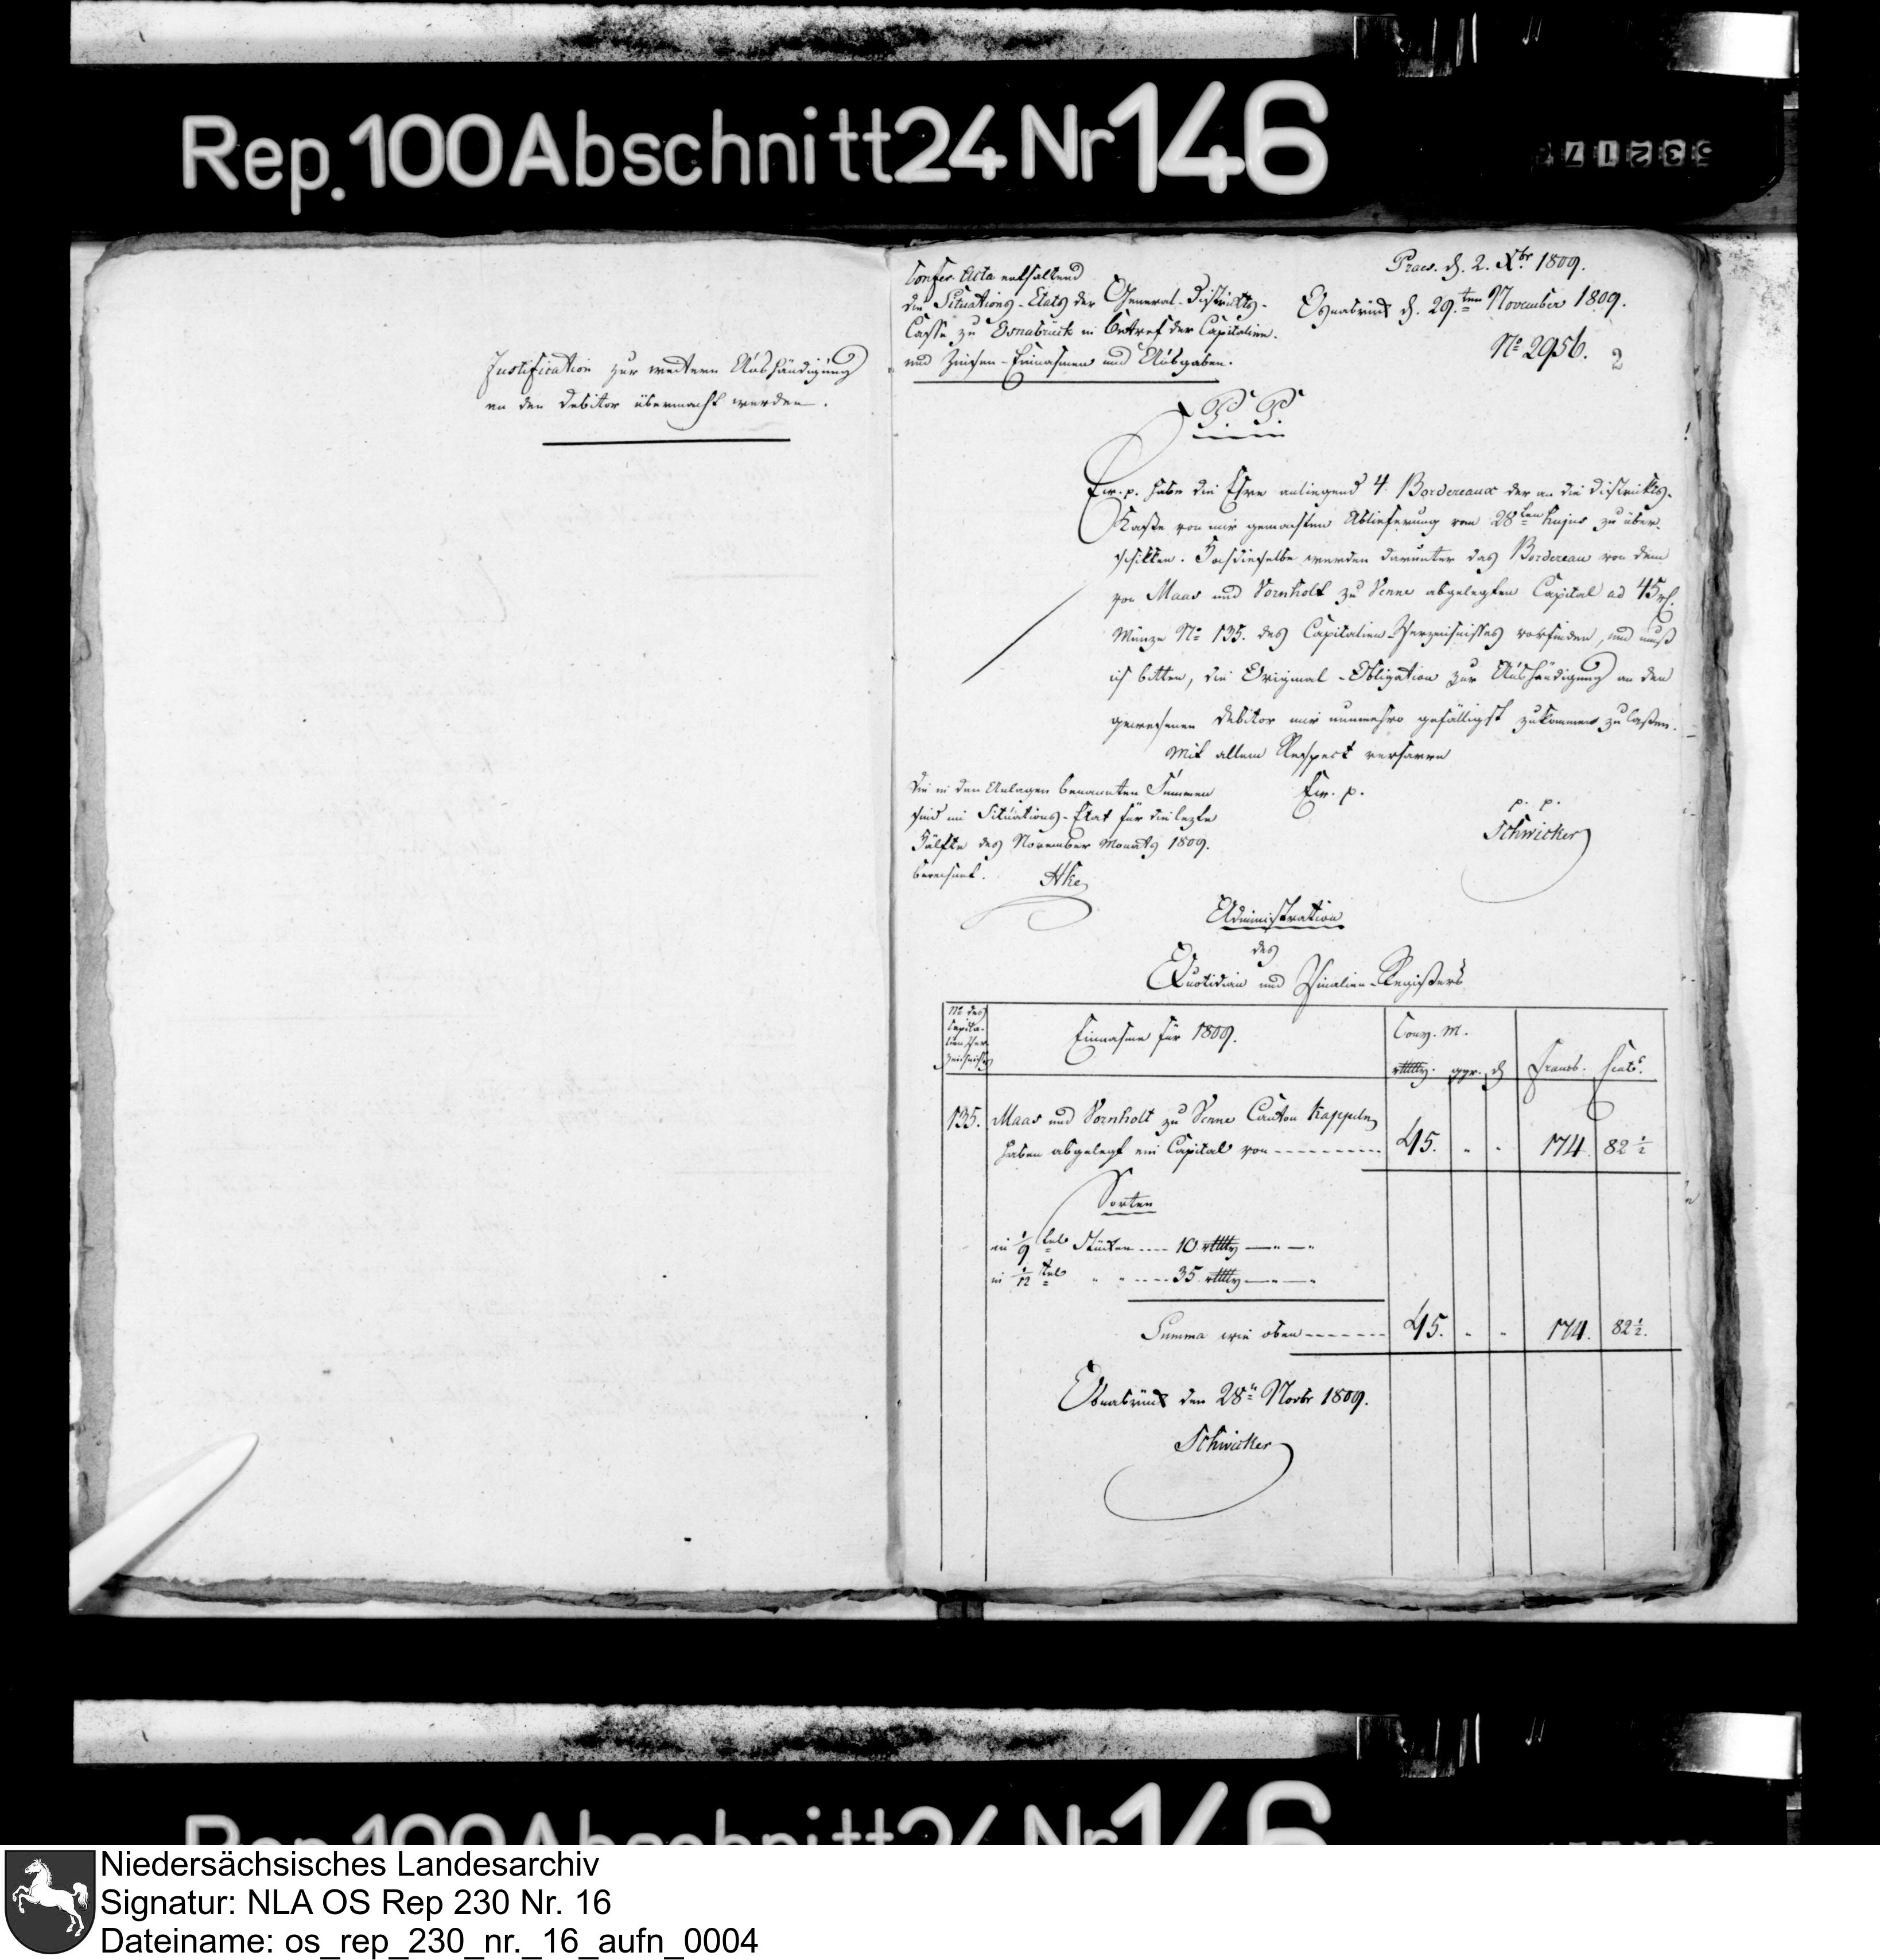 Rep. 100 Abschnitt 24 Nr 146
Justification zur weitern Aushändigung
an den Debitor übermacht werden.
Confer. Acta enthaltend
die Situations-Etats der General-Districts-
Casse zu Osnabrück in Betref der Capitalien-
und Zinsen-Einnahmen und Ausgaben.
Praes. d. 2. Xbr. 1809.
Osnabrück d. 29.ten November 1809.
No 2956.
2
P. P.
Ew. p. habe die Ehre anliegend 4 Bordereaux der an die Districts-
Kasse von mir gemachten Ablieferung vom 28ten hujus zu über-
schikken. Hochdieselbe werden darunter das Bordereau von dem
von Maas und Vornholt zu Venne abgelegten Capital ad 45 rt.
Münze No 135. des Capitalien-Verzeichnisses vorfinden, und muß
ich bitten, die Original-Obligation zur Aushändigung an den
gewesenen Debitor mir nunmehro gefälligst zukommen zu laßen.
Mit allem Respect verharre
Ew. p.
p. p.
Schwicker
Die in den Anlagen benannten Summen
sind im Situations-Etat für die lezte
Hälfte des November Monats 1809.
berechnet.
Administration
des
Quotidian und Vinalien-Registers
No des
Capita-
lien Ver-
zeichnißes
Einnahme für 1809.
Conv. M.
rthlr. ggr. d
Francs. Cents.
135. Maas und Vornholt zu Venne Canton Kappeln
haben abgelegt ein Capital von 45. " " 174. 82 1/2
Sorten
in 1/9 tel Stücken 10 rthlr — " — "
in 1/12 tel " " 35 rthlr — " — "
Summa wie oben 45. " " 174. 82 1/2.
Osnabrück den 28n Novbr 1809.
Schwicker
Rep. 100 Abschnitt 24 Nr 146
Niedersächsisches Landesarchiv
Signatur: NLA OS Rep 230 Nr. 16
Dateiname: os_rep_230_nr._16_aufn_0004